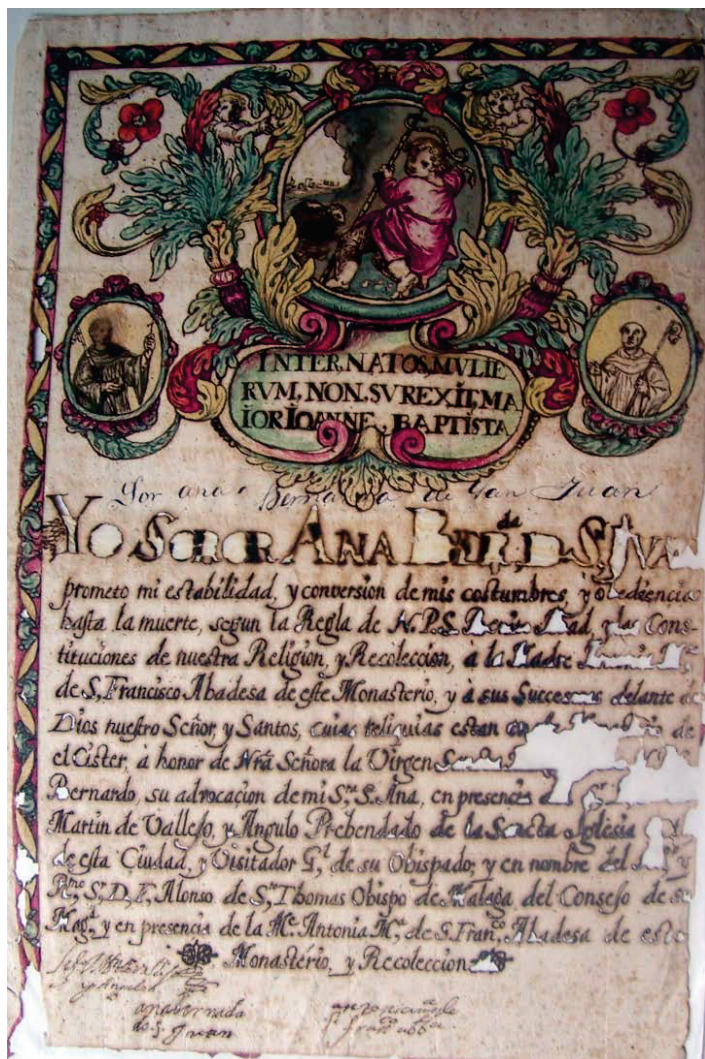 INTER.NATOS.MVLIE
RVM.NON.SVREXIT.MA
IOR IOANNE.BAPTISTA
Sor ana Bernarda de San Juan
Yo Soror Ana Ber.da D S. Jvan
prometo mi estabilidad, y conversion de mis costumbres, y obediencia
hasta la muerte, segun la Regla de N.P.S. y las Cons-
tituciones de nuestra Religion, y Recoleccion, à la Madre
de S. Francisco Abadesa de este Monasterio, y à sus Successoras delante de
Dios nuestro Señor, y Santos, cuias reliquias estan de
el Cister, à honor de Nrã Señora la Virgen
Bernardo, su advocaçion de mi S.ra S. Ana, en presencia
Martin de Vallejo, y Angulo Prebendado de la Sancta Iglesia
de esta Ciudad, y Visitador G.l de su Obispado; y en nombre del y
R.mo S.r D. F. Alonso de S.to Thomas Obispo de Malaga del Consejo de su
Mag.d y en presencia de la M.e Antonia M.a de S. Fran.co Abadesa de este
Monastério, y Recoleccion
y Angulo
ana bernarda
de S. Juan